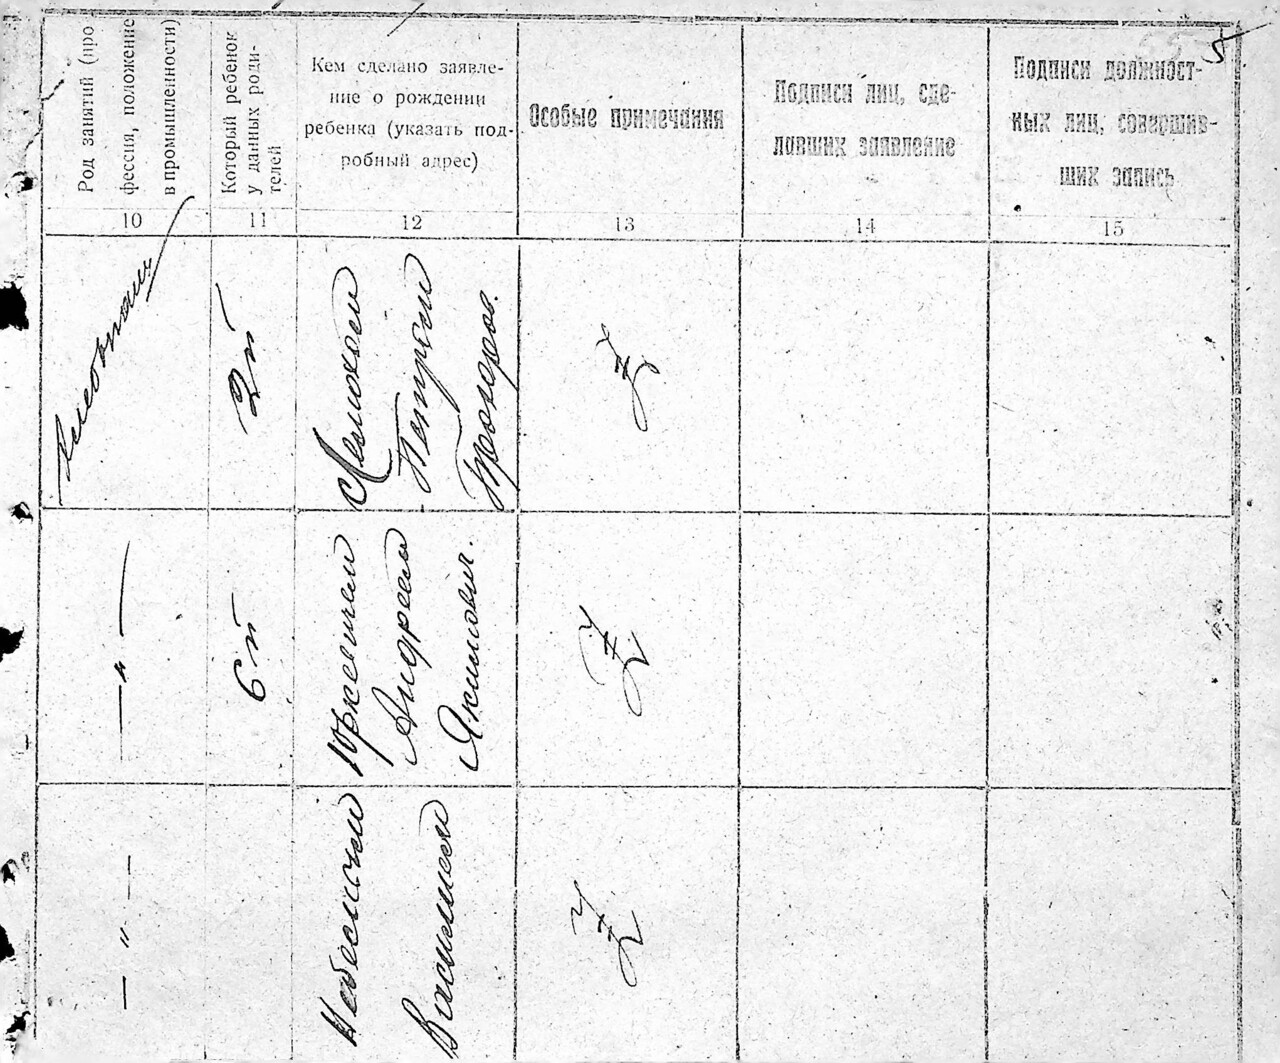 5
Род занятий (про
фессия, положение
в промышленности)
Который ребенок
у данных роди-
телей
Кем сделано заявле-
ние о рождении
ребенка (указать под-
робный адрес)
Особые примечания
Подписи лиц, сде-
лавших заявление
Подписи должност-
ных лиц, совершив-
ших запись
10
11
12
13
14
15
2й
Петром
— " —
6й
Андреем
Якимович.
— " —
Василием